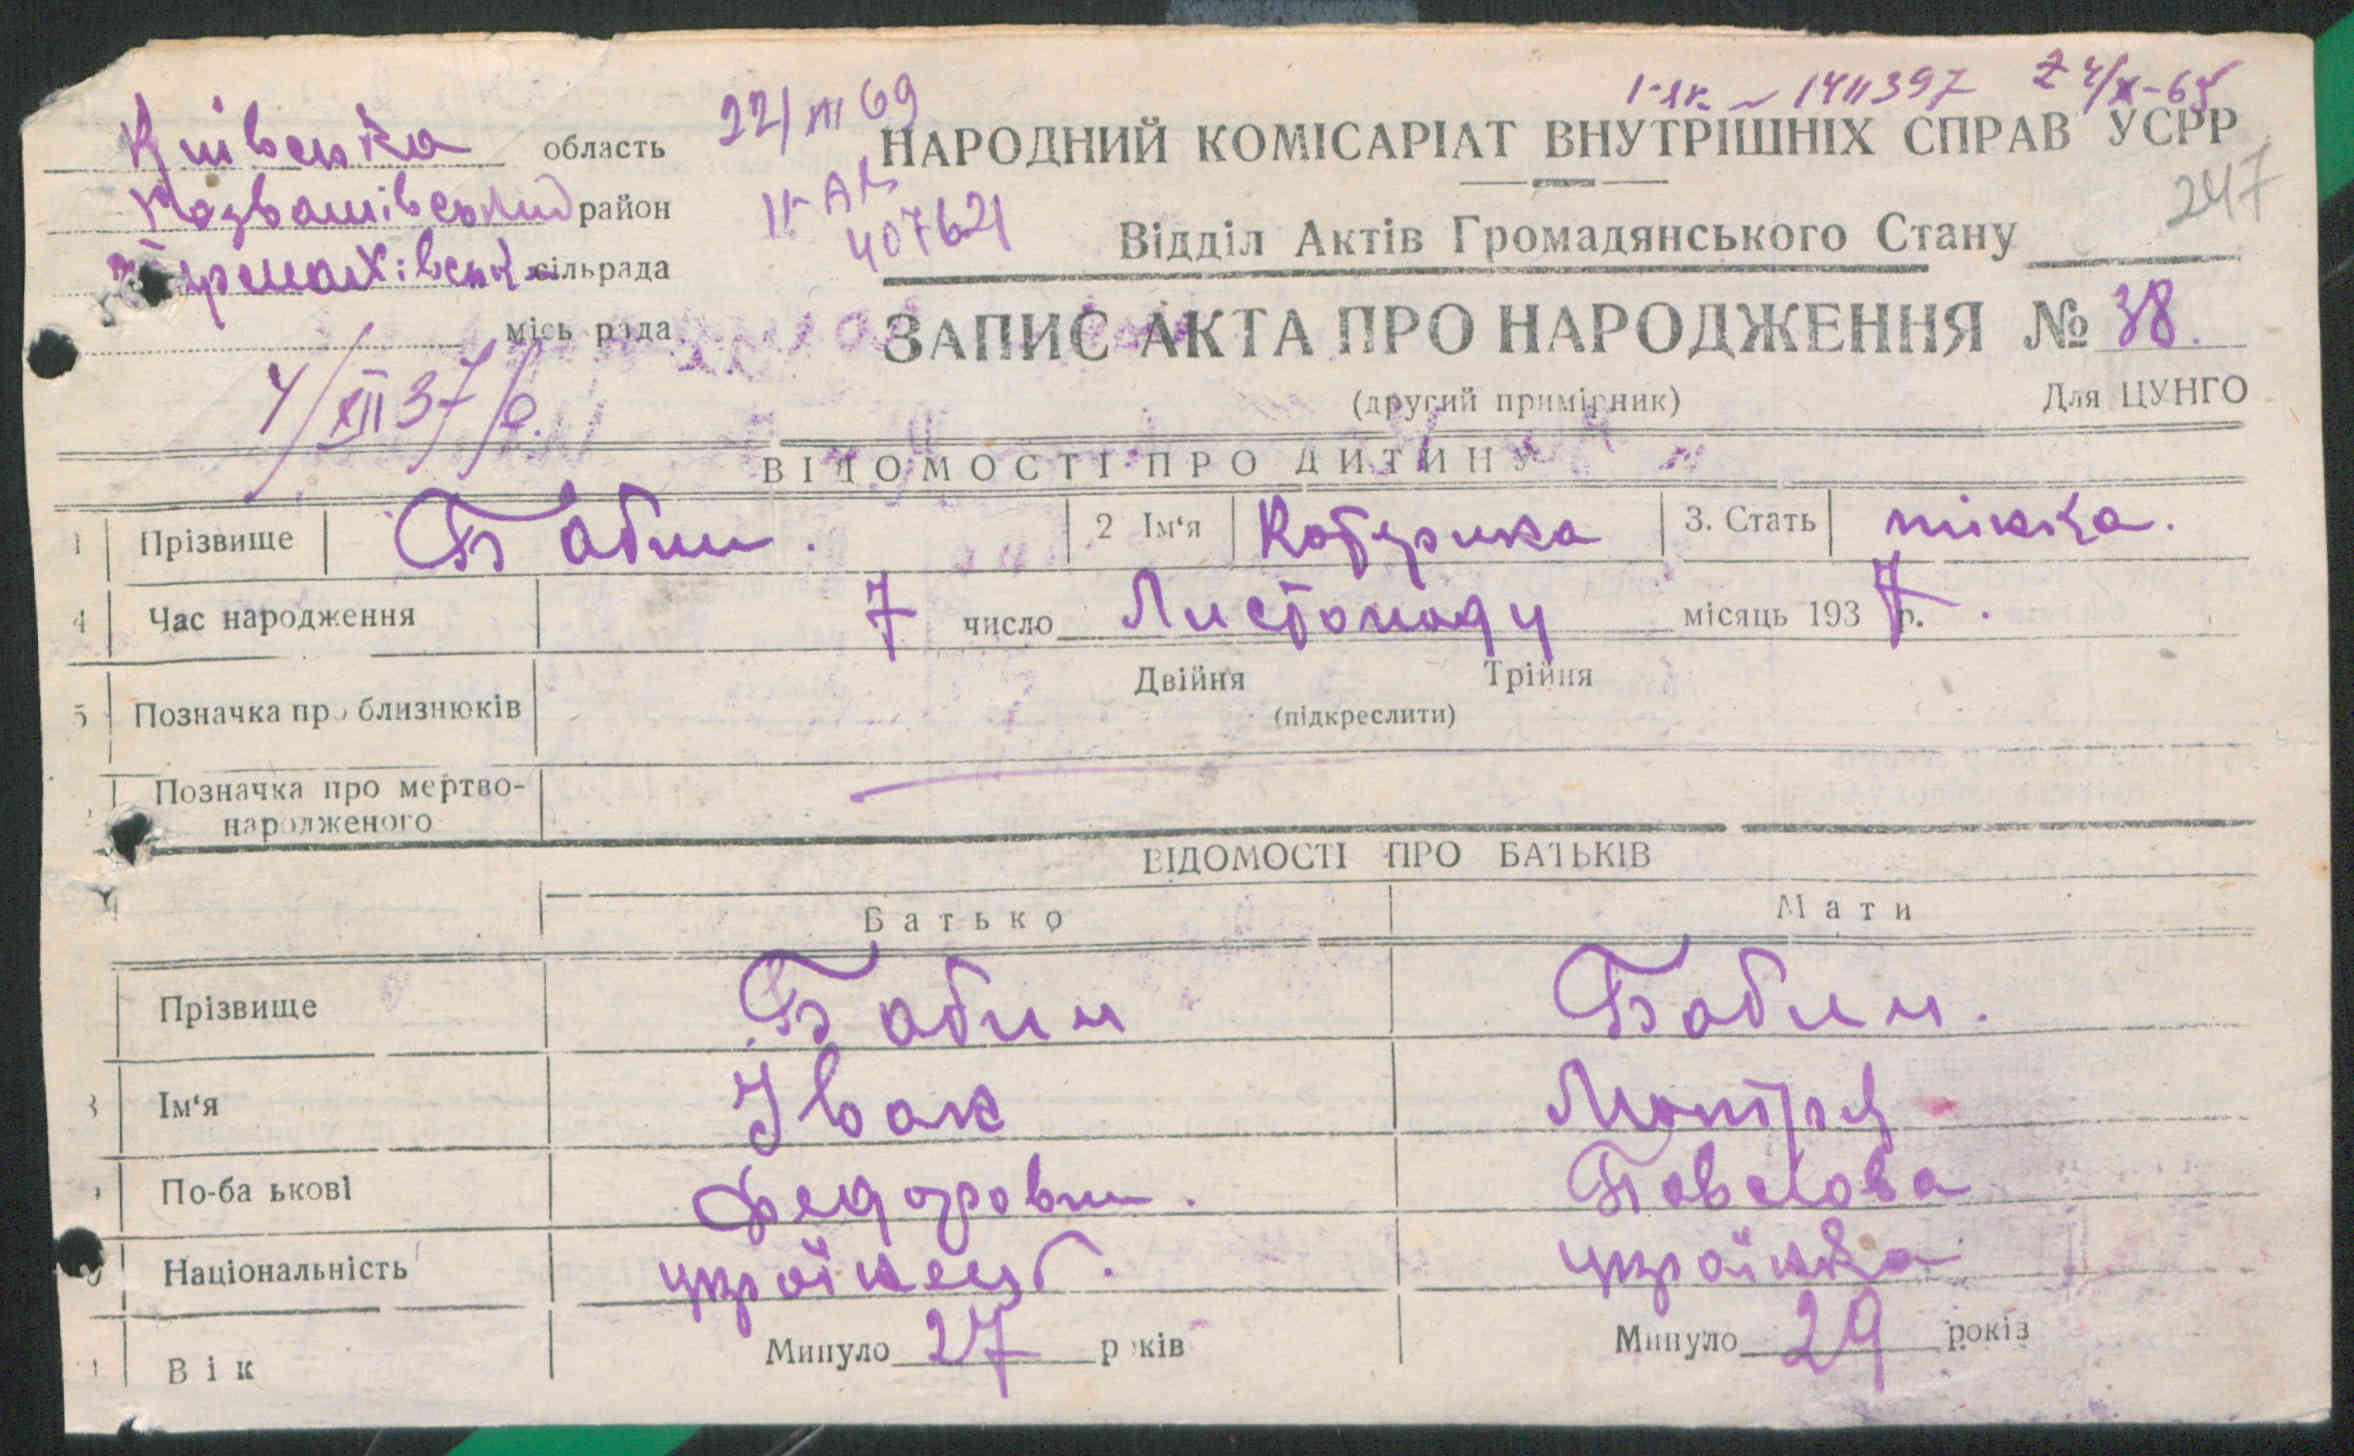 Київська область
Розважівський район
сільрада
міськрада
22/III 69
II-АБ
407621
1411397
НАРОДНИЙ КОМІСАРІАТ ВНУТРІШНІХ СПРАВ УСРР
247
Відділ Актів Громадянського Стану
ЗАПИС АКТА ПРО НАРОДЖЕННЯ № 38.
(другий примірник) Для ЦУНГО
4/XII 37 р.
ВІДОМОСТІ ПРО ДИТИНУ
1 Прізвище Бабич. 2 Ім'я Катерина 3. Стать жінка.
4 Час народження 7 число Листопаду місяць 1937 р.
5 Позначка про близнюків Двійня Трійня
(підкреслити)
Позначка про мертво-
народженого
ВІДОМОСТІ ПРО БАТЬКІВ
Батько Мати
Прізвище Бабич Бабич.
8 Ім'я Іван Мотря
По-батькові Федорович. Павлова
Національність українець. українка
Вік Минуло 27 років Минуло 29 років